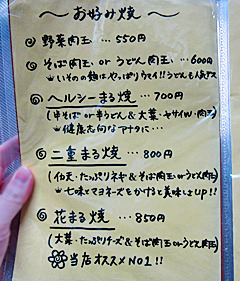 ～お好み焼～
◎ 野菜肉玉 … 550円
◎ そば肉玉 or うどん肉玉 … 600円
★いその麺はやっぱりウマイ!!うどんも人気デス
◎ ヘルシーまる焼 … 700円
(半そば or 半うどん & 大葉・ヤサイW・肉玉)
★健康志向なアナタに…
◎ 二重まる焼 … 800円
(イカ天・たっぷりネギ & そば肉玉 or うどん肉玉)
★七味とマヨネーズをかけると美味しさUP!!
◎ 花まる焼 … 850円
(大葉・たっぷりチーズ & そば肉玉 or うどん肉玉)
当店オススメNO1!!